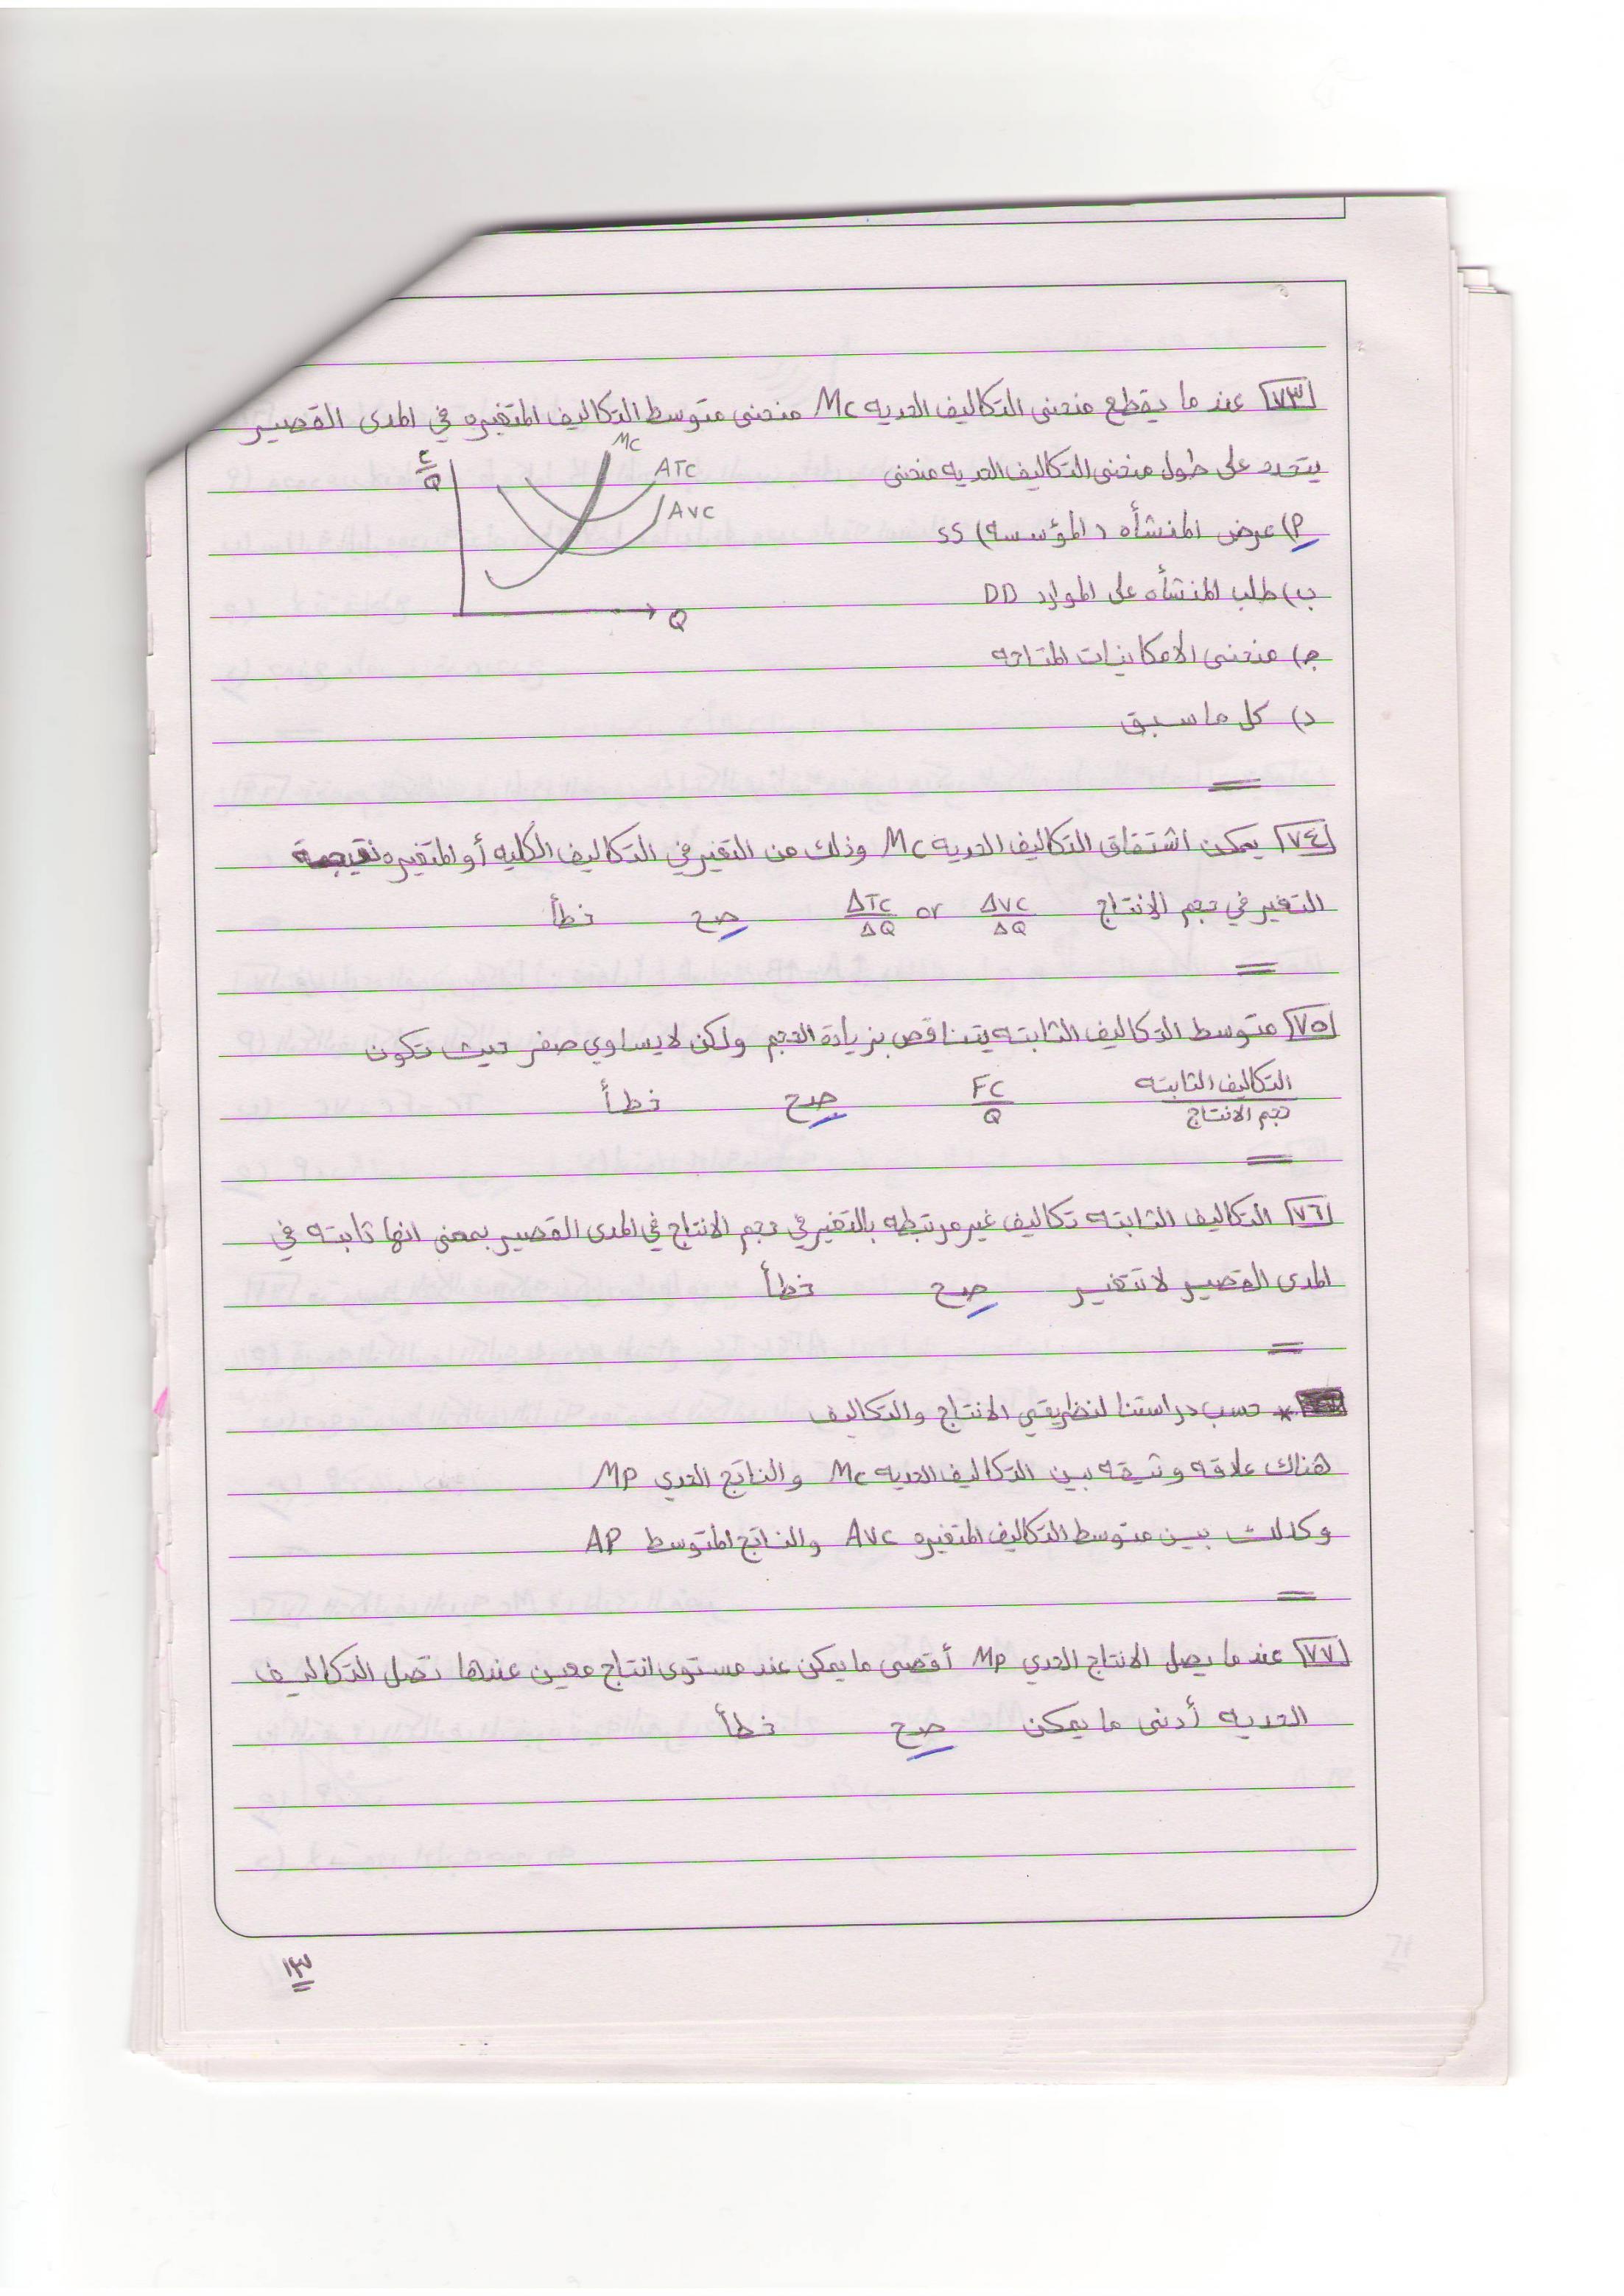 ٧٣ عند ما يقطع منحنى التكاليف الحديه Mc منحنى متوسط التكاليف المتغيره في المدى القصير
يتحدد على طول منحنى التكاليف الحديه منحنى
أ) عرض المنشأه (المؤسسه) SS
ب) طلب المنشأه على الموارد DD
ج) منحنى الامكانيات المتاحه
د) كل ما سبق
Mc
ATC
AVC
Q
٧٤ يمكن اشتقاق التكاليف الحديه Mc وذلك من التغير في التكاليف الكليه أو المتغيره نتيجة
التغير في حجم الانتاج ΔVC/ΔQ or ΔTC/ΔQ صح خطأ
٧٥ متوسط التكاليف الثابته يتناقص بزيادة الحجم ولكن لا يساوي صفر حيث تكون
التكاليف الثابته/حجم الانتاج FC/Q صح خطأ
٧٦ التكاليف الثابته تكاليف غير مرتبطه بالتغير في حجم الانتاج في المدى القصير بمعنى انها ثابته في
المدى القصير لا تتغير صح خطأ
* حسب دراستنا لنظريتي الانتاج والتكاليف
هناك علاقه وثيقه بين التكاليف الحديه Mc والناتج الحدي MP
وكذلك بين متوسط التكاليف المتغيره AVC والناتج المتوسط AP
٧٧ عند ما يصل الانتاج الحدي MP أقصى ما يمكن عند مستوى انتاج معين عندها تصل التكاليف
الحديه أدنى ما يمكن صح خطأ
١٣